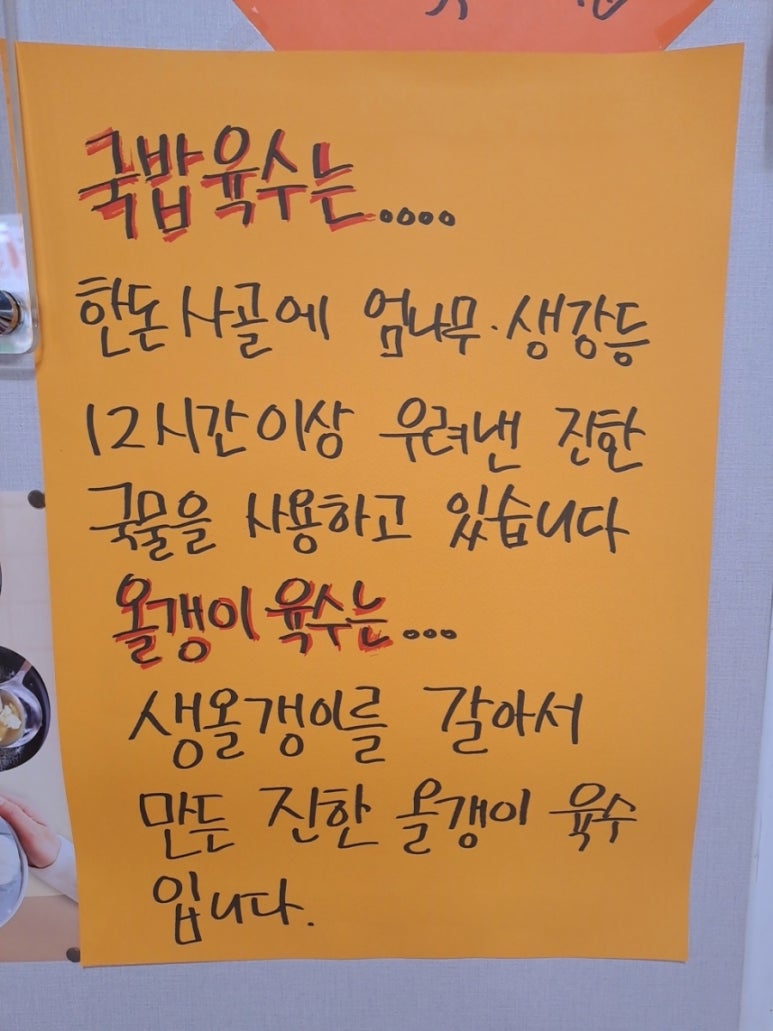 국밥육수는....
한돈사골에 엄나무·생강등
12시간이상 우려낸 진한
국물을 사용하고 있습니다
올갱이육수는...
생올갱이를 갈아서
만든 진한 올갱이 육수
입니다.